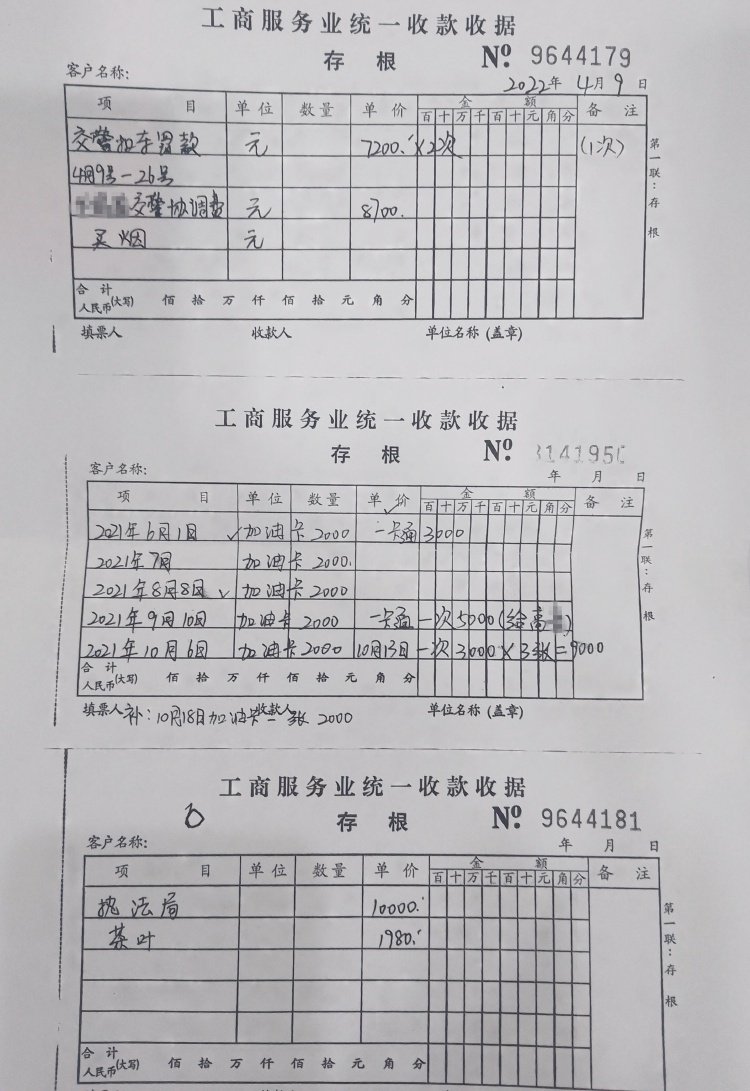 工商服务业统一收款收据
存 根 № 9644179
客户名称: 2022年 4月 9日
项 目 单位 数量 单价 金 额 备 注
百 十 万 千 百 十 元 角 分
交警扣车罚款 元 7200. ×2次 (1次)
4月9号-26号
交警协调费 元 8700.
买烟 元
合 计
人民币(大写) 佰 拾 万 仟 佰 拾 元 角 分
填票人 收款人 单位名称(盖章)
第一联:存根
工商服务业统一收款收据
存 根 № 314195
客户名称: 年 月 日
项 目 单位 数量 单价 金 额 备 注
百 十 万 千 百 十 元 角 分
2021年6月1日 ✓加油卡 2000 一卡通 3000
2021年7月 加油卡 2000.
2021年8月8日 ✓ 加油卡 2000
2021年9月10日 加油卡 2000 一卡通 一次 5000 (给高)
2021年10月6日 加油卡 2000 10月13日 一次 3000×3张=9000
合 计
人民币(大写) 佰 拾 万 仟 佰 拾 元 角 分
填票人 收款人 单位名称(盖章)
补:10月18日加油卡一张 2000
第一联:存根
工商服务业统一收款收据
存 根 № 9644181
客户名称: 年 月 日
项 目 单位 数量 单价 金 额 备 注
百 十 万 千 百 十 元 角 分
执法局 10000.
茶叶 1980.
合 计
人民币(大写) 佰 拾 万 仟 佰 拾 元 角 分
第一联:存根